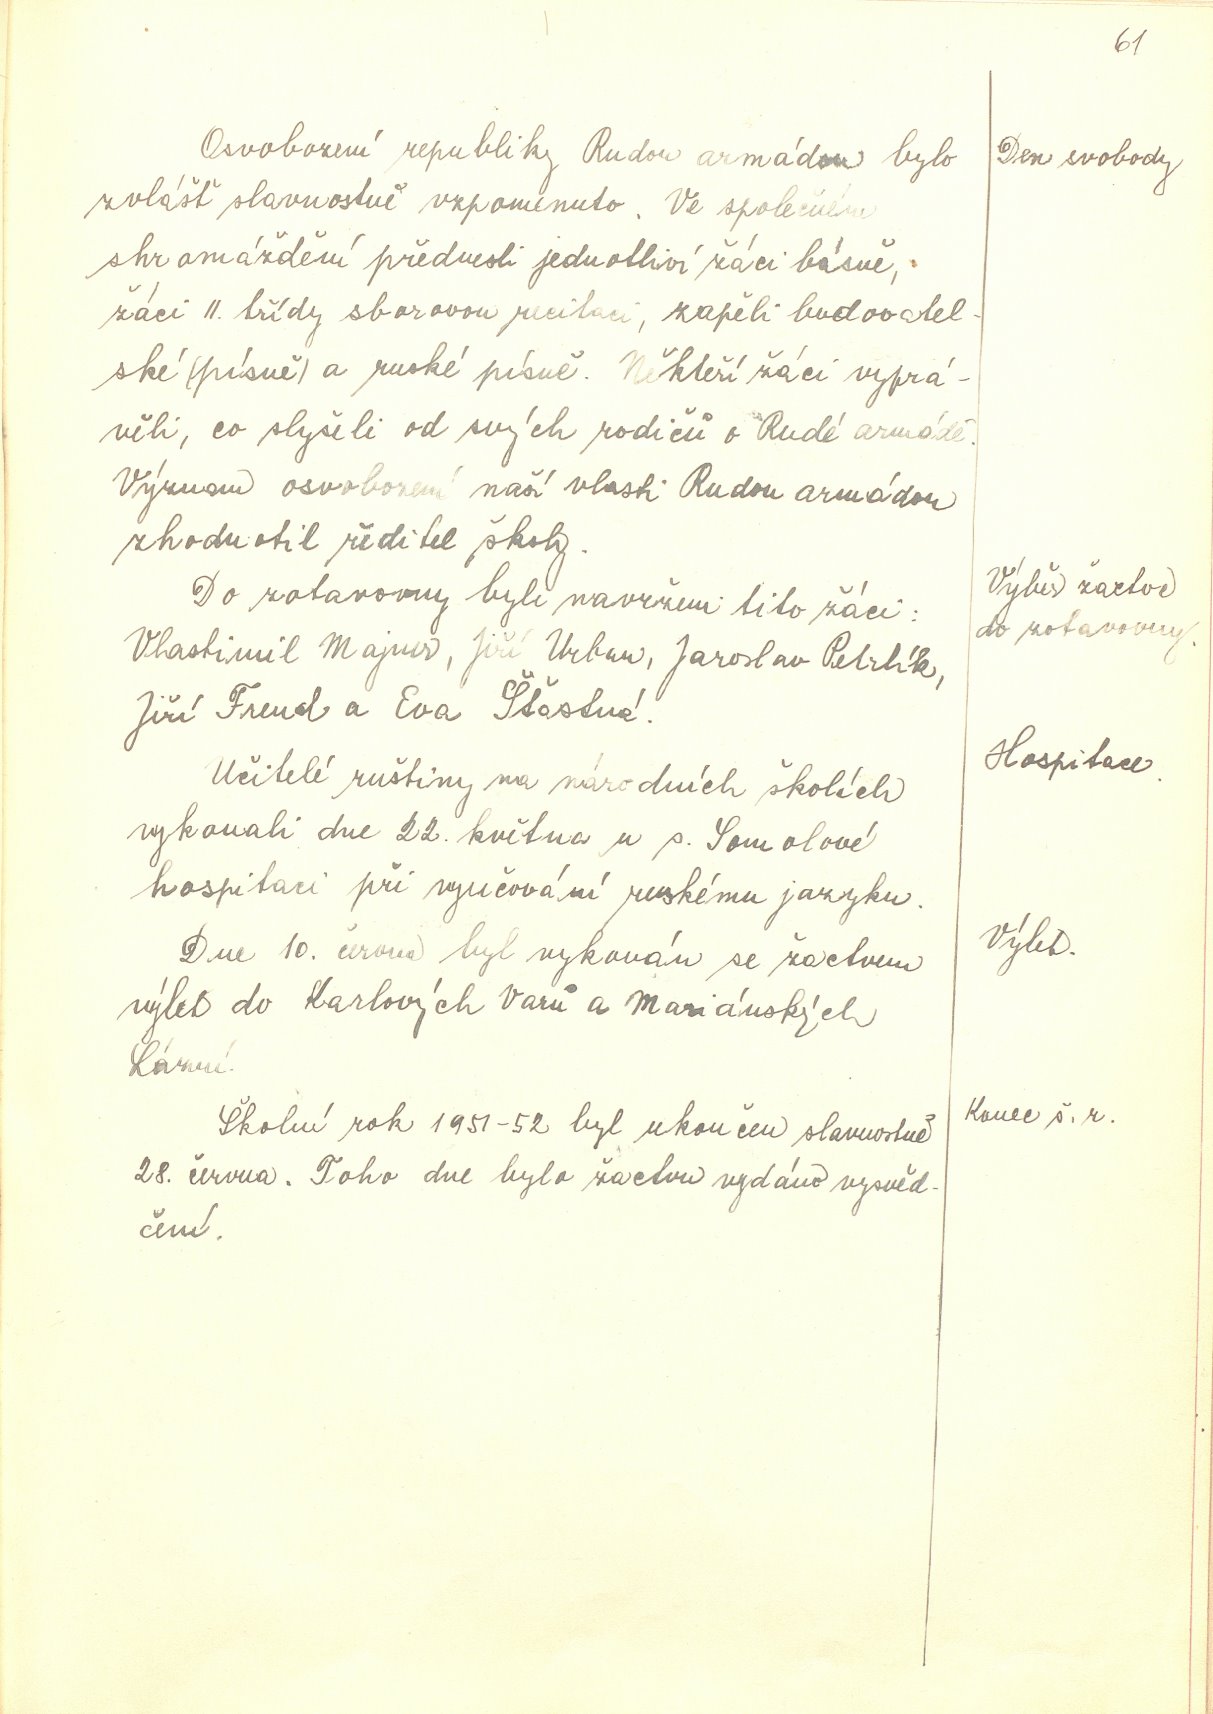 61
Osvobození republiky Rudou armádou bylo
Den svobody
zvlášť slavnostně vzpomenuto. Ve společném
shromáždění přednesli jednotliví žáci básně,
žáci II. třídy sborovou recitaci, zapěli budovatel-
ské (písně) a ruské písně. Někteří žáci vyprá-
věli, co slyšeli od svých rodičů o Rudé armádě.
Význam osvobození naší vlasti Rudou armádou
zhodnotil ředitel školy.
Do zotavovny byli navrženi tito žáci:
Výběr žactva
do zotavovny.
Vlastimil Majner, Jiří Urban, Jaroslav Petrlík,
Jiří Freud a Eva Šťastná.
Učitelé ruštiny na národních školách
Hospitace.
vykonali dne 22. května u s. Somolové
hospitaci při vyučování ruskému jazyku.
Dne 10. června byl vykonán se žactvem
Výlet.
výlet do Karlových Varů a Mariánských
Lázní.
Školní rok 1951-52 byl ukončen slavnostně
Konec š. r.
28. června. Toho dne bylo žactvu vydáno vysvěd-
čení.